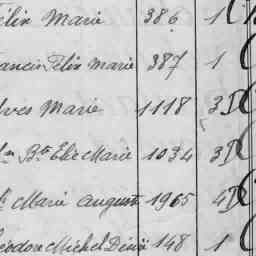 élix Marie 386 1
rancis Félix Marie 387 1
Yves Marie 1118 3D
Bte Elie Marie 1034 3D
Marie August 1965 4D
éodore Michel Denis 148 1